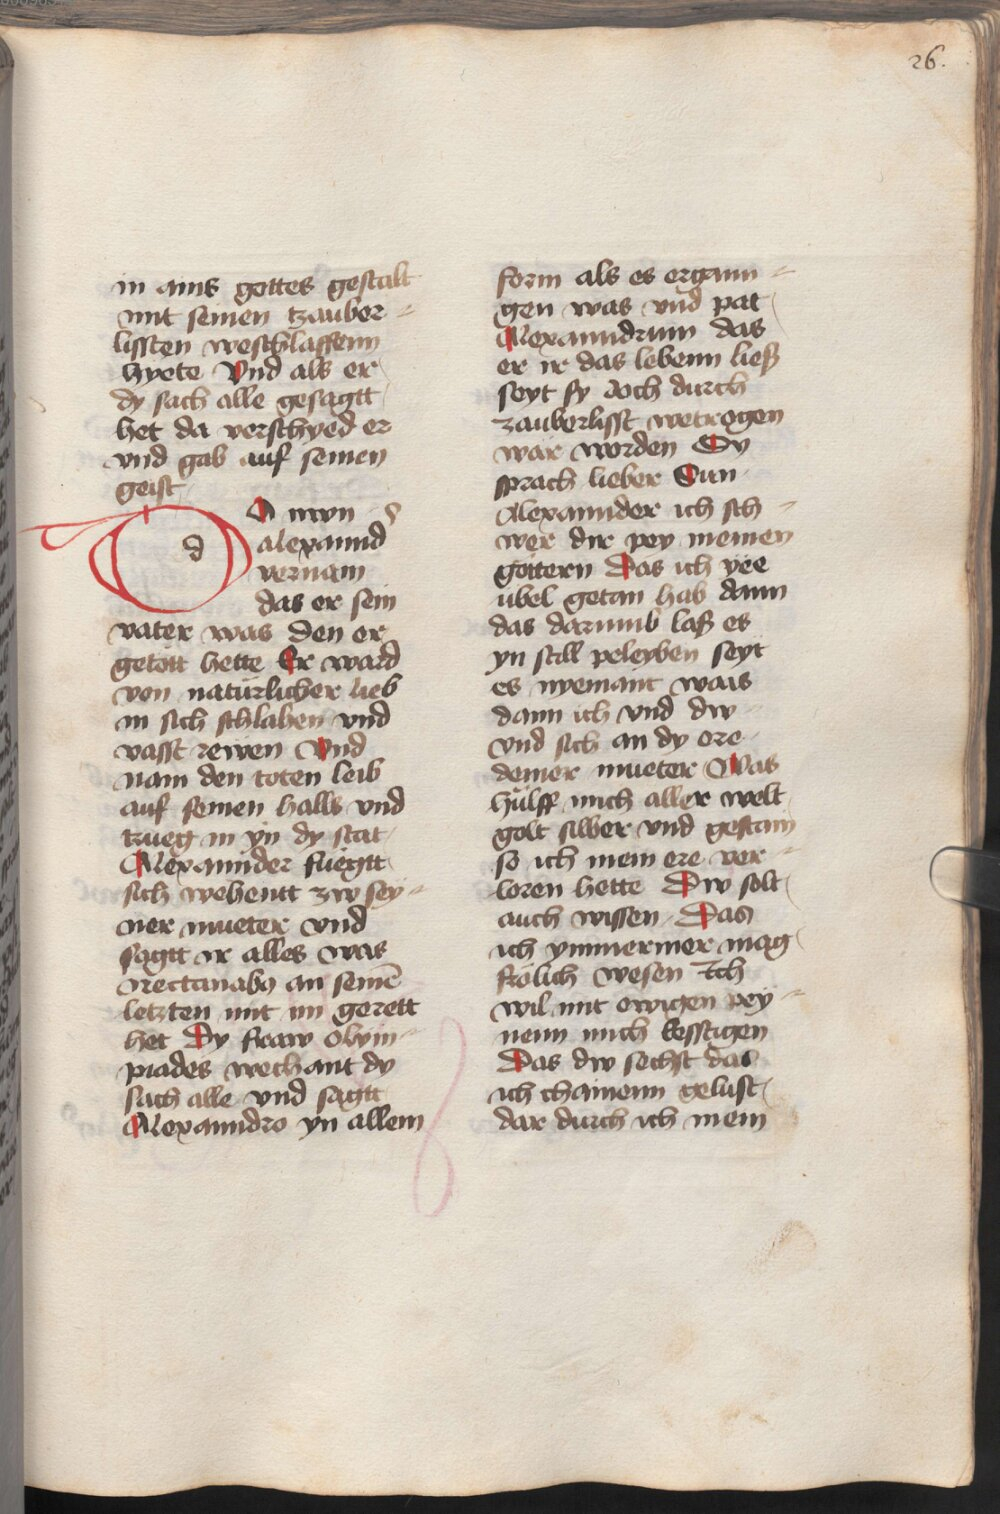 26.
in ains gottes gestalt
mit seinen tzauber=
lissten weschlaffenn
hyete Vnd als er
dy sach alle gesagtt
het da verschyed er
vnd gab auf seinen
geist
D A nvn
alexannd
vernam
das er sein
vater was den er
getött hette Er ward
von natürlicher lieb
in sich schlahen vnd
vasst rewen Vnd
nam den toten leib
auf seinen halls vnd
trueg in yn dy stat
Alexannder fuegtt
sich wehentt zw sey=
ner mueter vnd
sagtt ir alles was
nectanabo an seinē
letzten mit im gerett
het Dy fraw olym=
piades wechant dy
sach alle vnd sagtt
Alexanndro yn allem
form als es ergann=
gen was vnd pat
Alexanndrum das
er ir das lebenn ließ
seyt sy doch durch
zauberlisst wetrogen
wär worden Sy
sprach lieber Sun
Alexannder ich sch=
wer dir pey meinen
göttern Das ich yee
übel getan hab dann
das darumb laß es
yn still peleyben seyt
es nyemant wais
dann ich vnd dw
vnd sich an dy ere
deiner mueter Was
hülff mich aller welt
golt silber vnd gestain
so ich mein ere ver=
loren hette Dw solt
auch wissen Das
ich ymmermer mag
frölich wesen Ich
wil mit ewigen pey=
nenn mich kesstigen
Das dw sechst das
ich chainenn gelust
dar durch ich mein